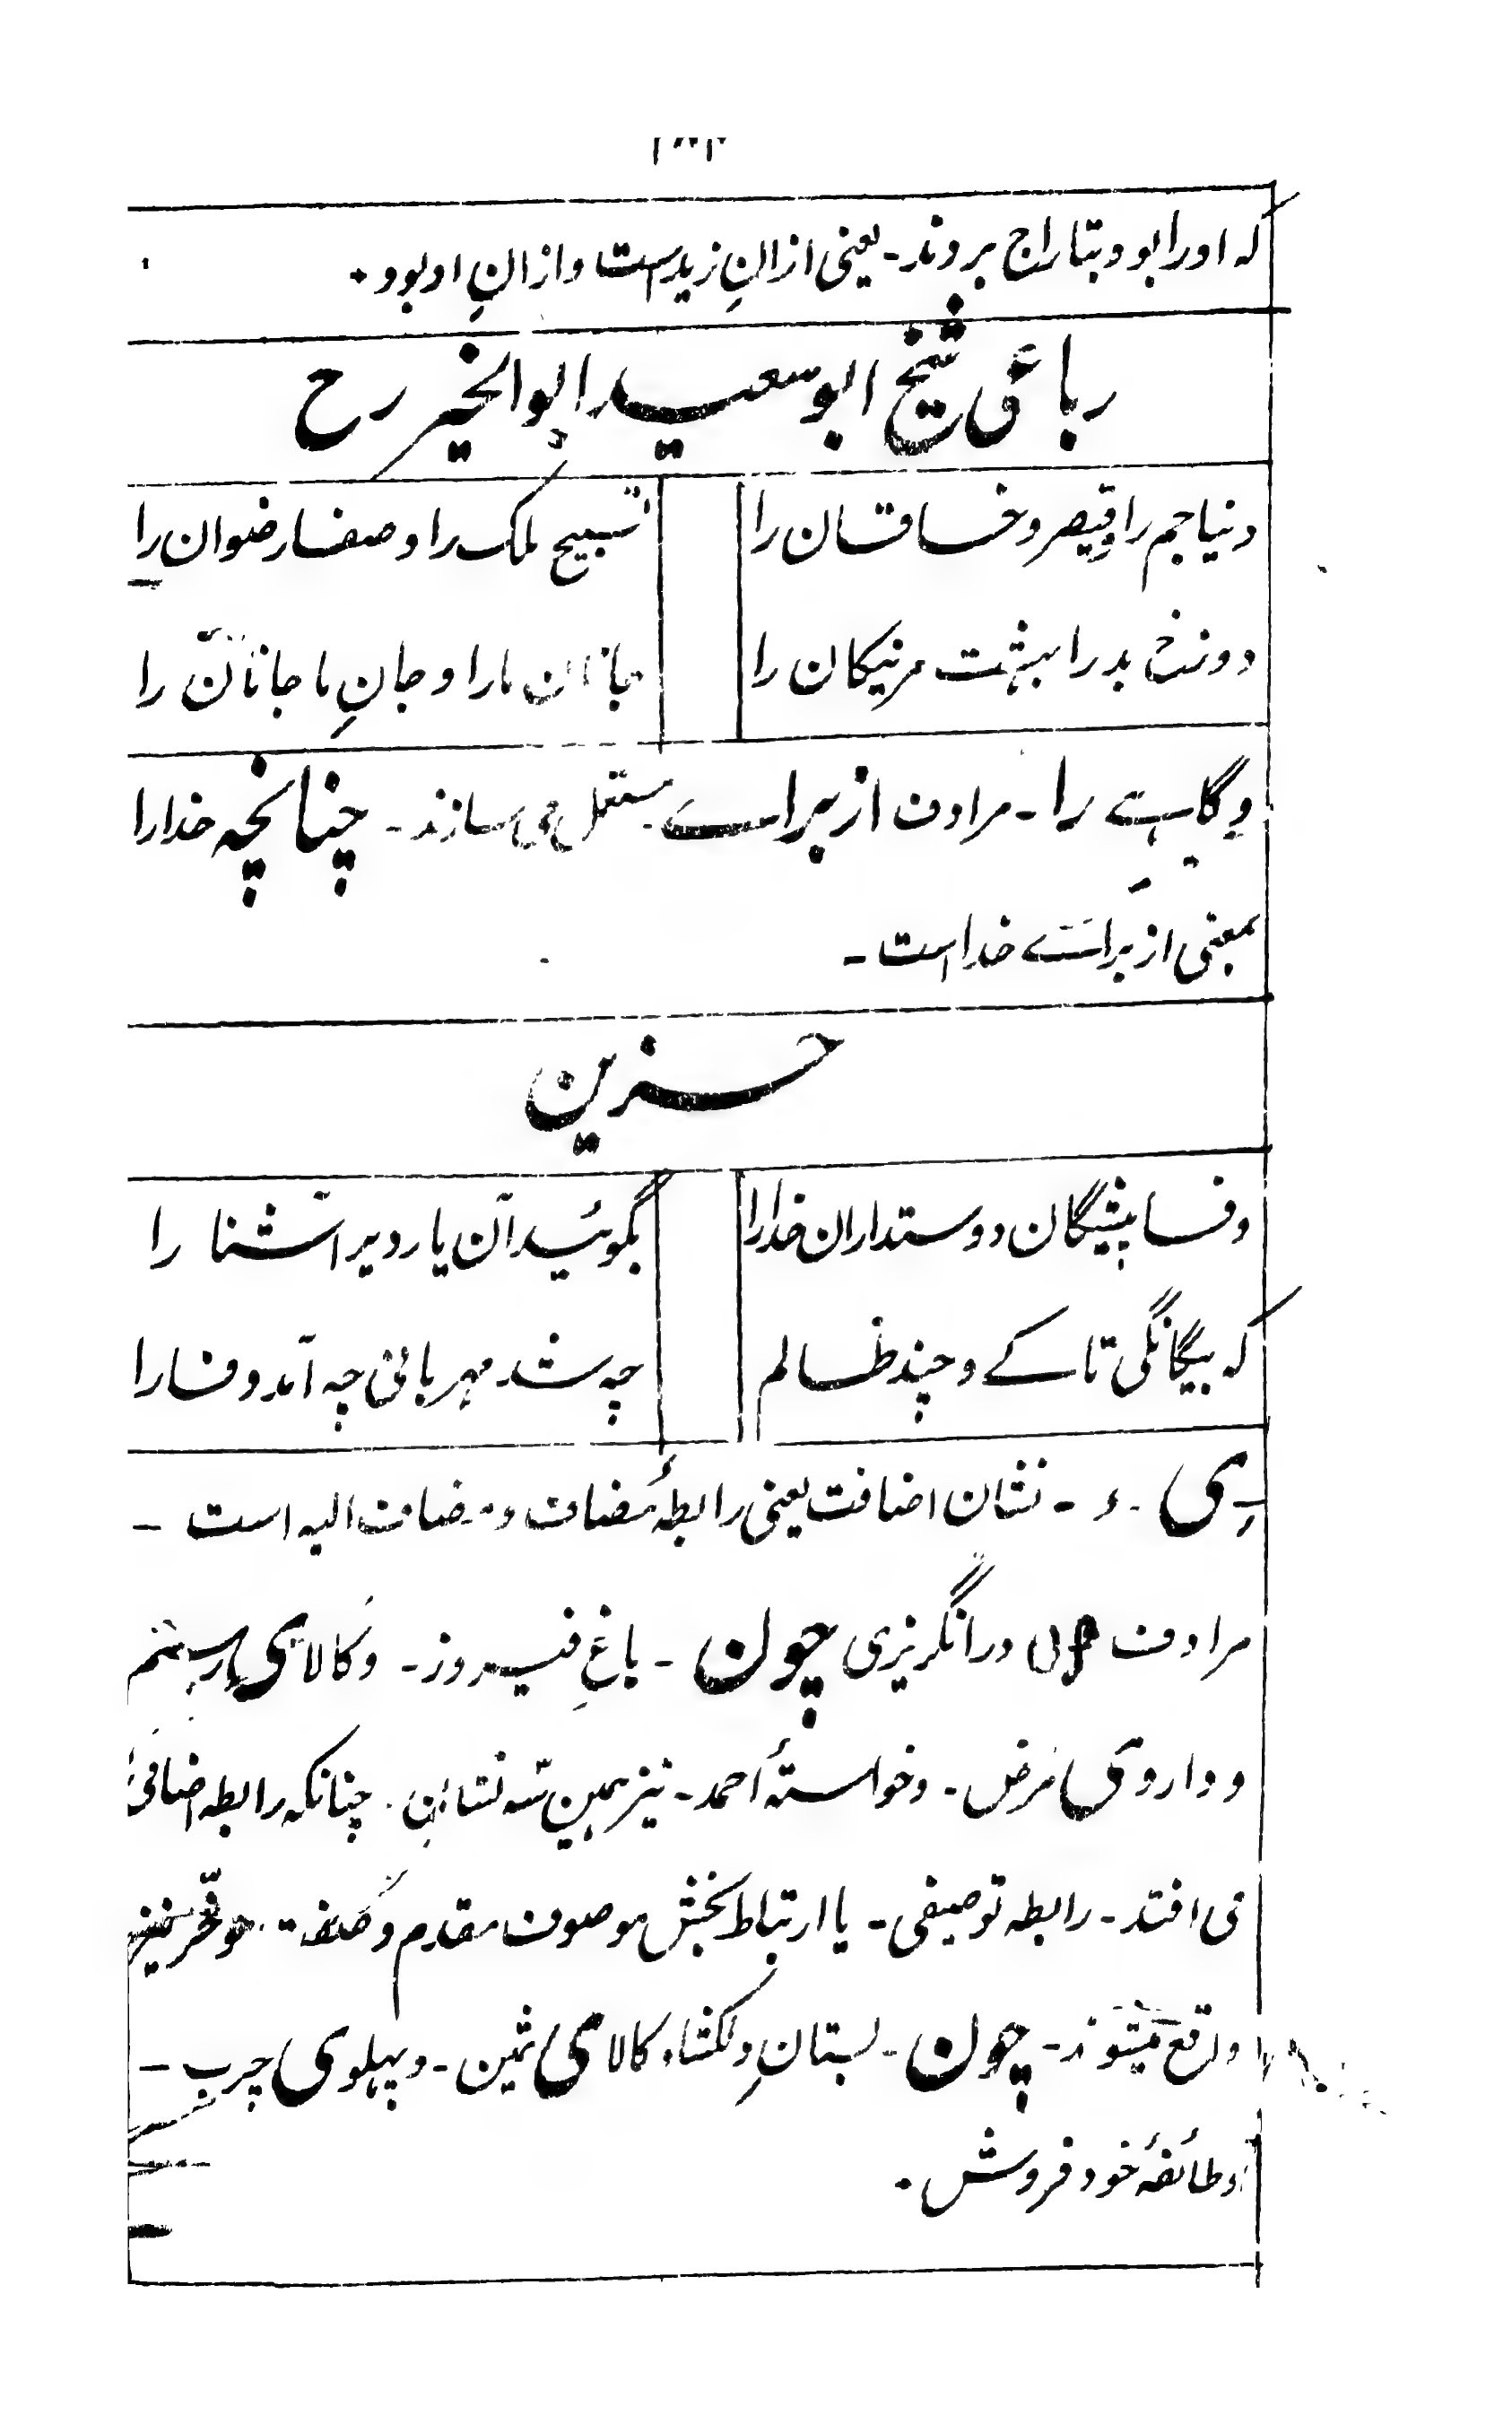 که اورا بود بتاراج بردند - یعنی ازانِ زید است و ازانِ او بود ۰
رباعی شیخ ابو سعید ابو الخیر رح
دنیا جم را و قیصر و خاقان را
تسبیح ملک را و صفا رضوان را
دوزخ بد را بهشت مر نیکان را
جانان ما را و جانِ ما جانان را
و گاهے را - مرادف از براے مستعمل می سازند - چنانچه خدا را
بمعنی از براے خدا است -
حزین
وفا پیشگان دوستداران خدا را
بگوئید آن یار دیر آشنا را
که بیگانگی تا کے و چند ظالم
چه شد مهربانی چه آمد وفا را
ــِ ی - ء - نشان اضافت یعنی رابطهٔ مضاف و مضاف الیه است -
مرادف در انگریزی چون - باغِ فیروز - و کالای رستم
و داروی مرض - و خواستهٔ احمد - نیز همین سه نشان چنانکه رابطه اضافی
می افتد - رابطه توصیفی - یا ارتباط بخش موصوف مقدم و صفت موخر نیز
واقع میشوند - چون - بستانِ دلکشا، کالای ثمین - و پهلوی چرب -
و طائفهٔ خود فروش ۰